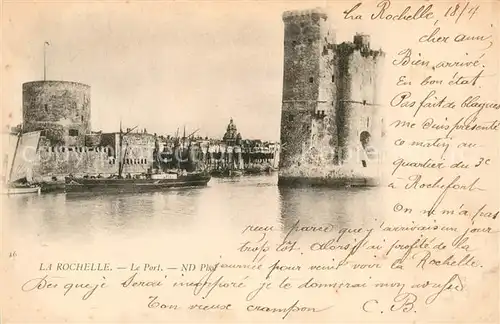 La Rochelle, 18/4
cher ami,
Bien arrivé
En bon état
Pas fait de blagues
me suis présenté
ce matin au
quartier du 3e
à Rochefort
On ne m'a pas
reçu parce que venu un jour
trop tôt. Alors j'ai profité de la
journée pour venir voir la Rochelle.
Dès que je serai incorporé je te donnerai mon
Ton vieux crampon C. B.
16
LA ROCHELLE. — Le Port. — ND Phot